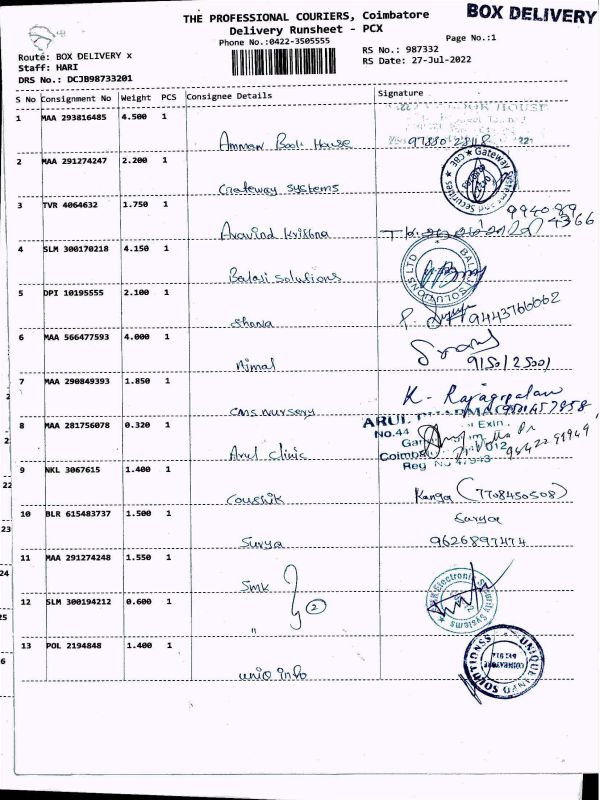 BOX DELIVERY
THE PROFESSIONAL COURIERS, Coimbatore
Delivery Runsheet - PCX
Phone No.:0422-3505555
Page No.:1
Route: BOX DELIVERY x
RS No.: 987332
Staff: HARI
RS Date: 27-Jul-2022
DRS No.: DCJB98733201
S No Consignment No Weight PCS Consignee Details Signature
1 MAA 293816485 4.500 1
Book House
2 MAA 291274247 2.200 1
Gateway Systems
3 TVR 4064632 1.750 1
Aravind Krishna
4 SLM 300170218 4.150 1
Balaji Solutions
BALAJI SOLUTIONS LTD
5 DPI 10195555 2.100 1
9443760062
6 MAA 566477593 4.000 1
Nirmal
7 MAA 290849393 1.850 1
CMS Nursery K. Rajagopalan
8 MAA 281756078 0.320 1
ARUL
No.44
Arul Clinic
Reg No
9 NKL 3067615 1.400 1
Coushik Kanga (7708450508)
10 BLR 615483737 1.500 1
Surya
Surya 9626897474
11 MAA 291274248 1.550 1
SMK
Electronic Security Systems
12 SLM 300194212 0.600 1
2
"
13 POL 2194848 1.400 1
UNIQUE INFO SOLUTIONSS
COIMBATORE
Uniq Info